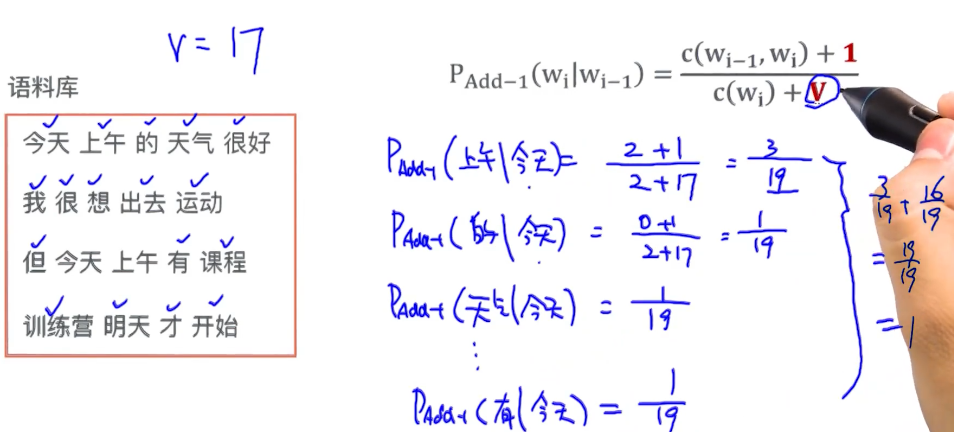 V = 17
语料库
今天 上午 的 天气 很好
我 很 想 出去 运动
但 今天 上午 有 课程
训练营 明天 才 开始
P_Add−1(w_i|w_{i−1}) = c(w_{i−1}, w_i) + 1 / c(w_i) + V
P_Add-1(上午|今天) = 2+1 / 2+17 = 3/19
P_Add-1(的|今天) = 0+1 / 2+17 = 1/19
P_Add-1(天气|今天) = 1/19
⋮
P_Add-1(有|今天) = 1/19
3/19 + 16/19
= 19/19
= 1